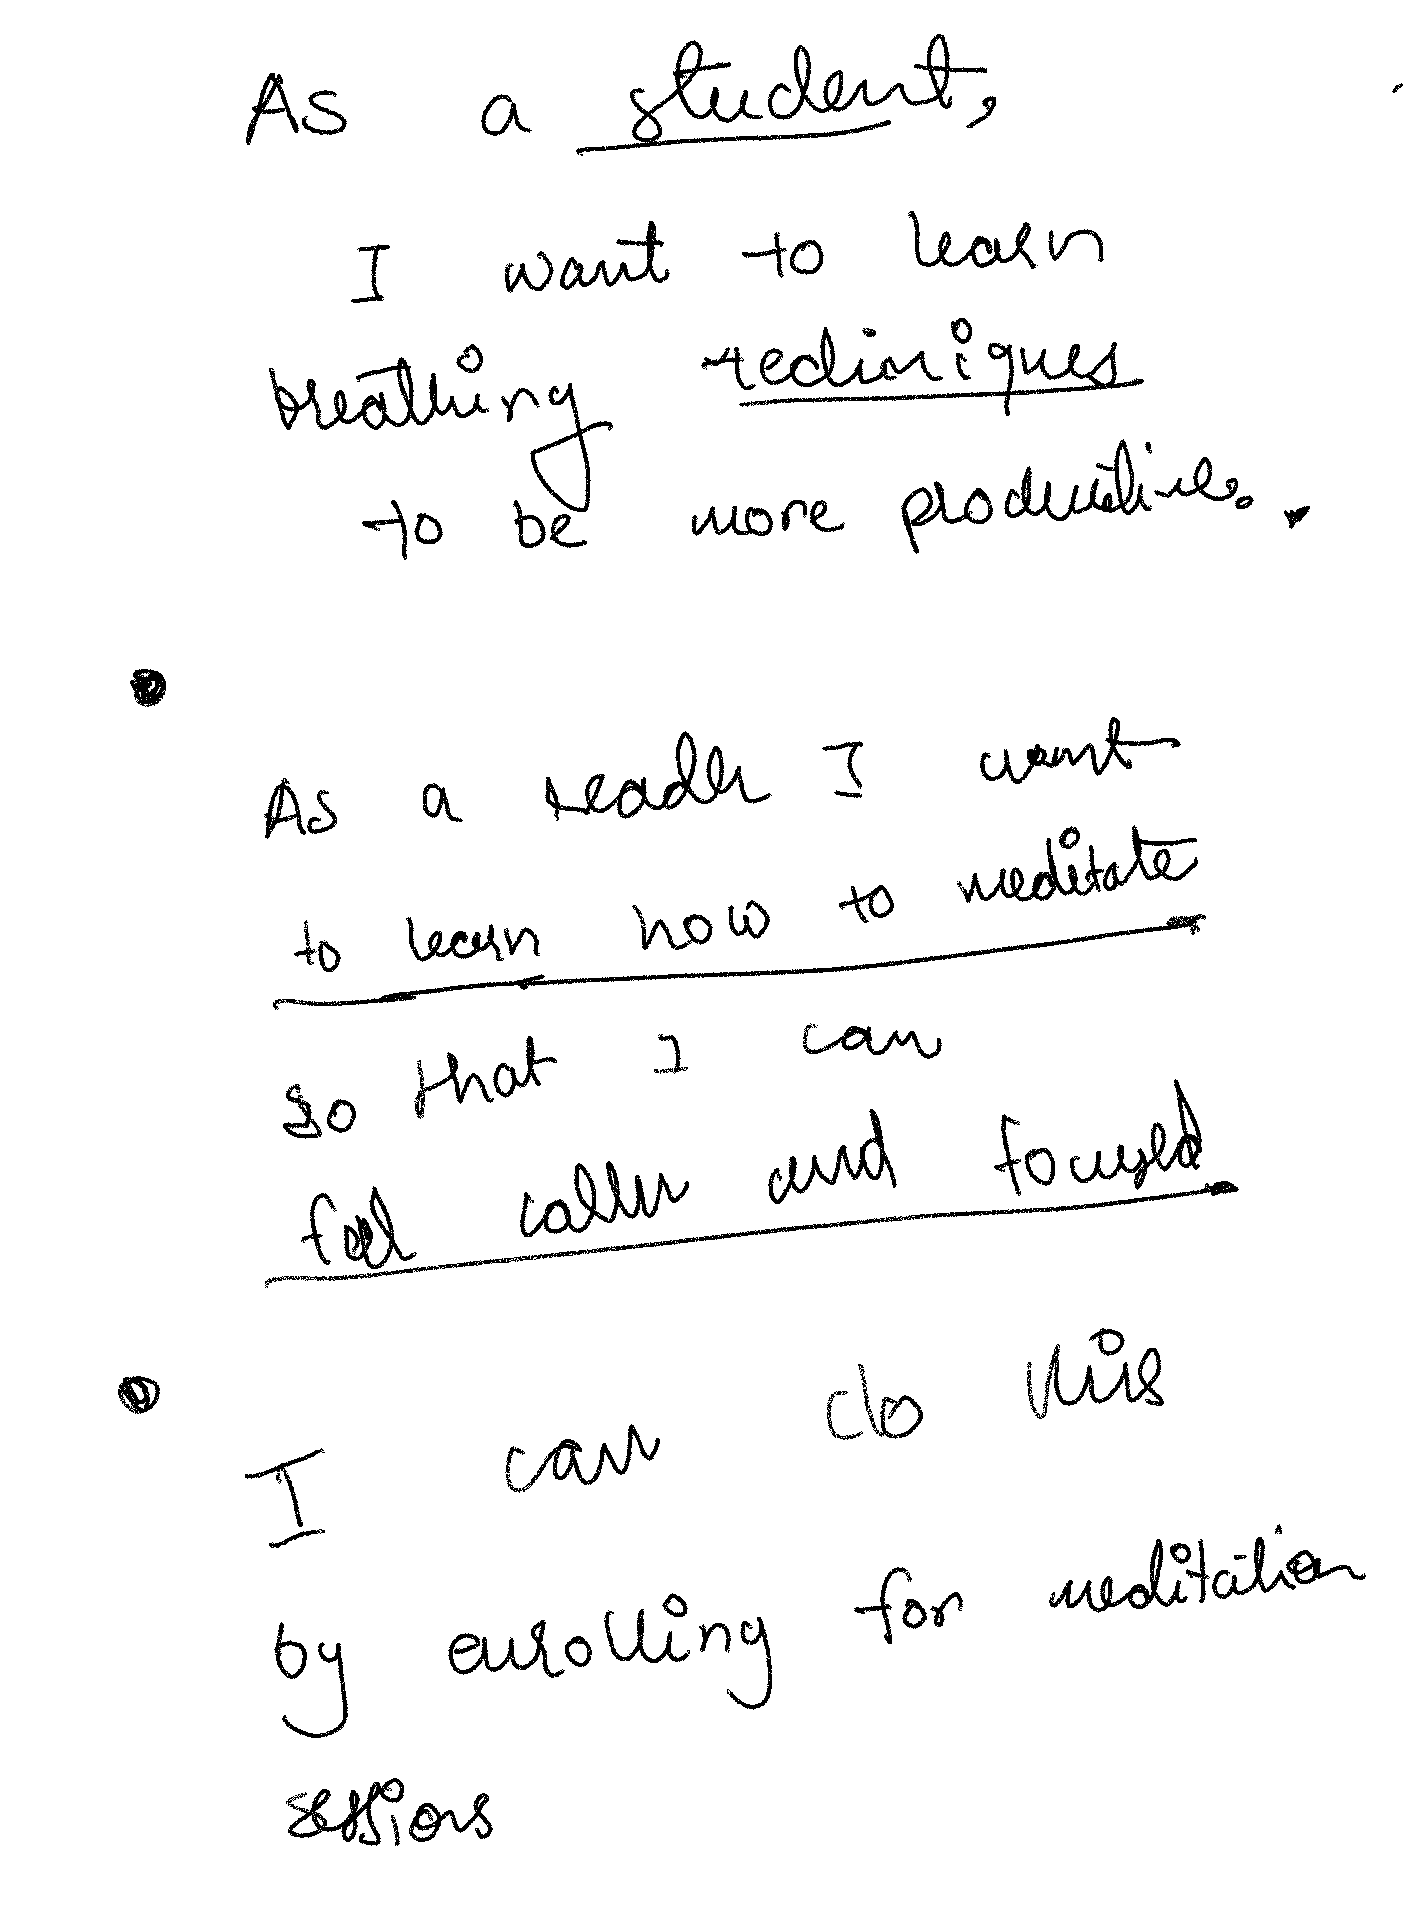 As a student,
I want to learn
breathing techniques
to be more productive.
As a reader I want
to learn how to meditate
so that I can
feel calm and focused
I can do this
by enrolling for meditation
sessions